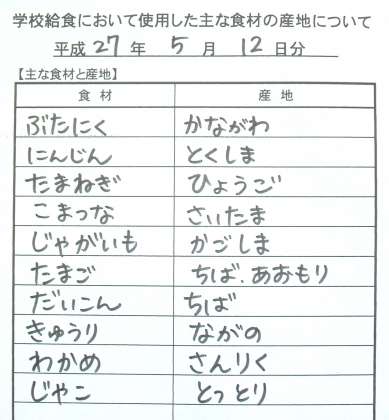 学校給食において使用した主な食材の産地について
平成 27 年 5 月 12 日分
【主な食材と産地】
食材 産地
ぶたにく かながわ
にんじん とくしま
たまねぎ ひょうご
こまつな さいたま
じゃがいも かごしま
たまご ちば.あおもり
だいこん ちば
きゅうり ながの
わかめ さんりく
じゃこ とっとり